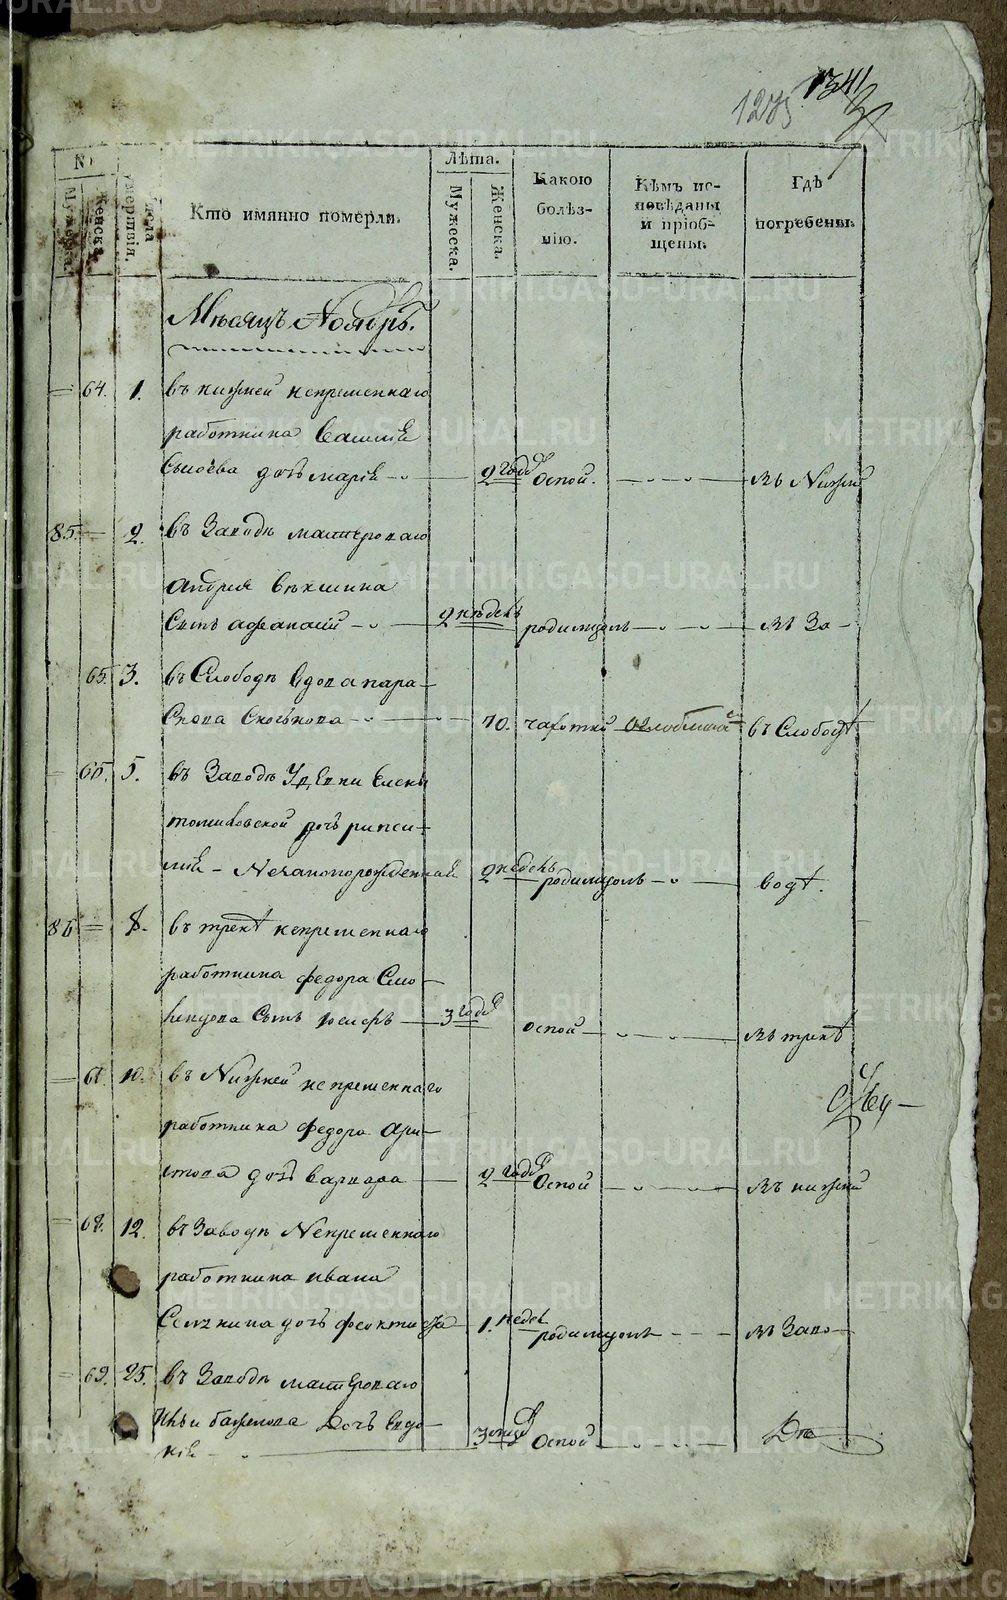 1341
1275
№
Мужеска.
Женска.
Числа мертвія.
Кто имянно померли.
Лѣта.
Мужеска.
Женска.
Какою болѣз-нію.
Кѣмъ ис-повѣданы и пріоб-щены.
Гдѣ погребены.
Мѣсяцъ Ноябрь.
64. 1. въ нижней непременнаго
работника Василія
Сысоева дочь марія 2 года Оспой. въ Нижней
85. 2. въ Заводѣ мастероваго
андрея векшина
Сынъ афанасій 2 недель родимцомъ въ За-
65. 3. въ Слободѣ вдова пара-
скова 70. чахоткой въ Слободѣ
66. 5. въ Заводѣ у девки елены
дочь рипси-
мія - Незаконорожденная 2 недель родимцомъ водѣ.
86 8. въ трекѣ непременнаго
работника федора Сло-
Сынъ иосифъ 3 года оспой въ трекѣ
67. 10. въ Нижней непременнаго
работника федора ари-
стова дочь варвара 2 года Оспой въ нижней
68. 12. въ Заводѣ Непременнаго
работника ивана
дочь феоктиста 1. недел родимцомъ въ Заво-
69. 25. въ Заводѣ мастероваго
баженова Дочь евдо-
кія 3 года Оспой
METRIKI.GASO-URAL.RU